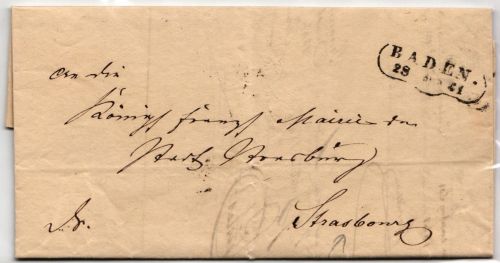 BADEN.
28 41
An die
Königl franz Mairie der
Stadt Strasburg
Strasbourg